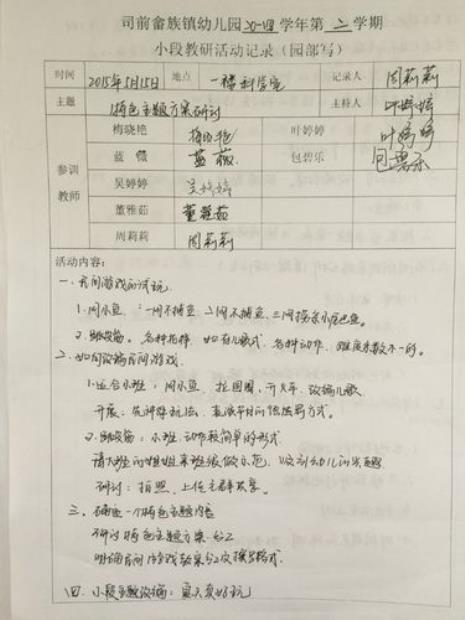 司前畲族镇幼儿园 学年第二学期
小段教研活动记录（园部写）
时间 2015年5月15日 地点 一楼科学室 记录人 周莉莉
主题 特色主题方案研讨 主持人 叶婷婷
梅晓艳 梅晓艳 叶婷婷 叶婷婷
蓝薇 蓝薇 包碧乐 包碧乐
参训
教师
吴婷婷 吴婷婷
董雅茹 董雅茹
周莉莉 周莉莉
活动内容：
一、民间游戏的试玩
1.网小鱼：一网不捕鱼、二网不捕鱼、三网捞条小尾巴鱼。
2.跳皮筋。各种花样，如有儿歌式、各种动作、难度系数不一的。
二、如何改编民间游戏
1.适合小班：网小鱼、拉圆圈、开火车、改编儿歌
开展：先讲解玩法，表演节目的惩罚方式。
2.跳皮筋：小班动作较简单的形式
请大班的姐姐来班级做示范，吸引幼儿的
研讨：拍照、上传主群共享。
三、确定一个特色主题内容
研讨特色主题方案分工
明确民间游戏教案分工撰写格式
四、小段主题改编：夏天真好玩